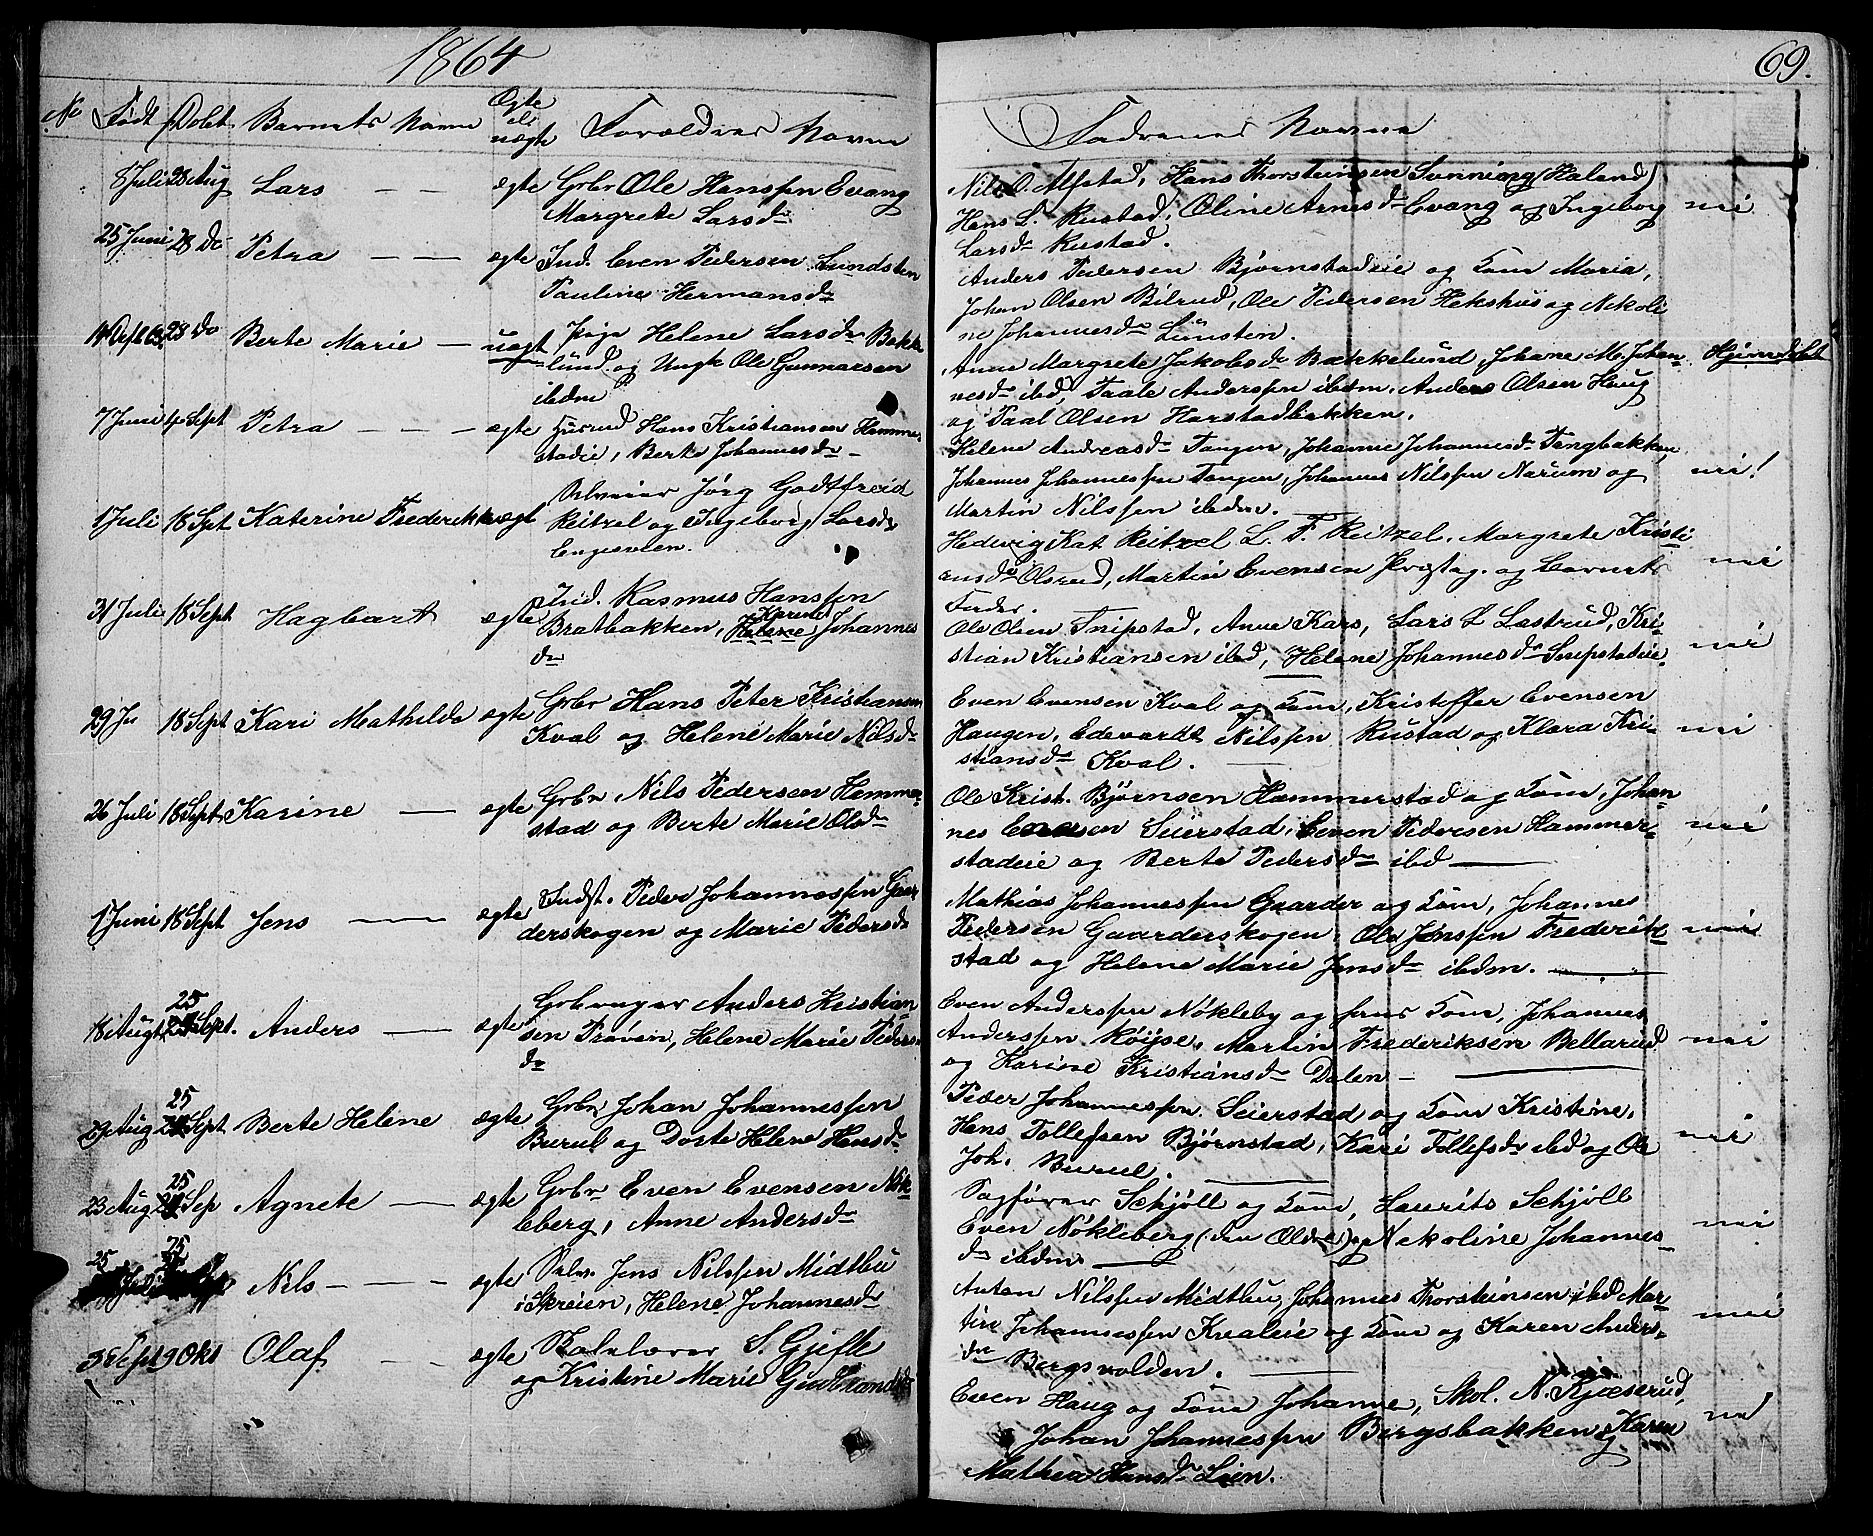 1864
69.
No Født Døbt Barnets Navn Ægte el. uægte Forældres Navne
Fadrenes Navne
8 Juli 28 Aug Lars — — ægte Grbr Ole Hanssen Evang
Margrete Larsdr
Nils O. Alfstad, Hans Thorsteinsen Sønning (Haland)
Hans L. Rustad, Oline Arnesdr Evang og Ingeborg
Larsdr Rustad.
25 Juni 28 do Petra — — — ægte Ind. Even Pedersen Lundsten
Pauline Hermansdr
Anders Pedersen Bjørnstadeie og Kone Maria,
Johan Olsen Bilrud, Ole Pedersen Hekshus og Nikoli
ne Johannesdr Lunsten.
28 do Berte Marie — uægt Pige Helene Larsdr Bække
lund og Ungk Ole Gunnarsen
ibdm
Anne Margrete Jakobsdr Bækkelund, Johane M. Johan-
nesdr ibd, Paale Anderssen ibdm. Anders Olsen Haug
og Paal Olsen Harstadbakken.
Hjemdøbt
7 Juni Sept Petra — — — ægte Husmd Hans Kristiansen Hammer
stadeie, Berte Johannesdr —
Helene Andreasdr Tangen, Johanne Johannesdr Tangbakken,
Johannes Johannessen Tangen, Johannes Nilssen Narum og
Martin Nilssen ibdm.
1 Juli 18 Spt Katerine Frederikke ægt Jørg Godtfreid
Reitzel og Ingeborg Larsdr
Engesveen.
Hedevig Kat Reitzel L. F. Reitzel. Margrete Kristi
ansdr Olsrud, Martin Evensen Præsteg. og Barnets
Fader.
31 Juli 18 Sept Hagbart ægte Ind. Rasmus Hanssen
Bratbakken, Helene Karine Johannes
dr
Ole Olsen Snipstad, Anne Kars, Lars L Lastrud, Kri-
stian Kristiansen ibd, Helene Johannesdr Snipstadeie.
29 Ju 18 Sept Kari Mathilde ægte Grbr Hans Peter Kristiansen
Kval og Helene Marie Nilsdr
Even Evensen Kval og Kone, Kristoffer Evensen
Haugen, Edevardt Nilssen Rustad og Klara Kri-
stiansdr Kval.
26 Juli 18 Sept Karine — ægte Grbr Nils Pedersen Hammer-
stad og Berte Marie Olsdr
Ole Krist. Bjørnsen Hammerstad og Kone, Johan-
nes Seierstad, Even Pedersen Hammer-
stadeie og Berte Pedersdr ibd —
1 Juni 18 Sept Jens — ægte Indst. Peder Johannessen Gaar
derskogen og Marie Pedersdr
Mathias Johannessen Gaarder og Kone, Johannes
Pedersen Gaarderskogen, Ole Jenssen Frederik-
stad og Helene Marie Jensdr ibdm. —
18 Augt 25 Sept. Anders — ægte Grbruger Anders Kristian
sen Prøven, Helene Marie Peders
dr
Even Anderssen Nøkleby og hans Kone, Johannes
Anderssen Røise, Martin Frederiksen Bellerud
og Karine Kristiansdr Dalen —
29 Aug 25 Sept Berte Helene ægte Grbr Johan Johannessen
Burul og Dorte Helene Hansdr
Peder Johannessen Seierstad og Kone Kristine,
Hans Tollefsen Bjørnstad, Kari Tollefsdr ibd og Ole
Joh. Burul.
23 Aug 25 Sep Agnete — ægte Grbr Even Evensen Nøk
leberg, Anne Andersdr
Sagfører Schjøll og Kone, Laurits Schjøll
Even Nøkleberg (den Ældre) og Nikoline Johannes-
dr ibdm —
25 25 Nils — — — ægte Selv. Jens Nilssen Midtbu
i Skreien, Helene Johannesdr
Anton Nilssen Midtbu, Johannes Thorsteinsen ibd Mar-
tin Johannessen Kvaleie og Kone og Karen Anders-
dr Bergsvolden.
3 Sept 9 Okt Olaf — — ægte Skolelærer S. Gjefle
og Kristine Marie Gudbrandsdr
Even Haug og Kone Johanne, Skol. N. Kjæserud,
Johan Johannessen Bergsbakken, Karen
Mathea Hansdr Lien.